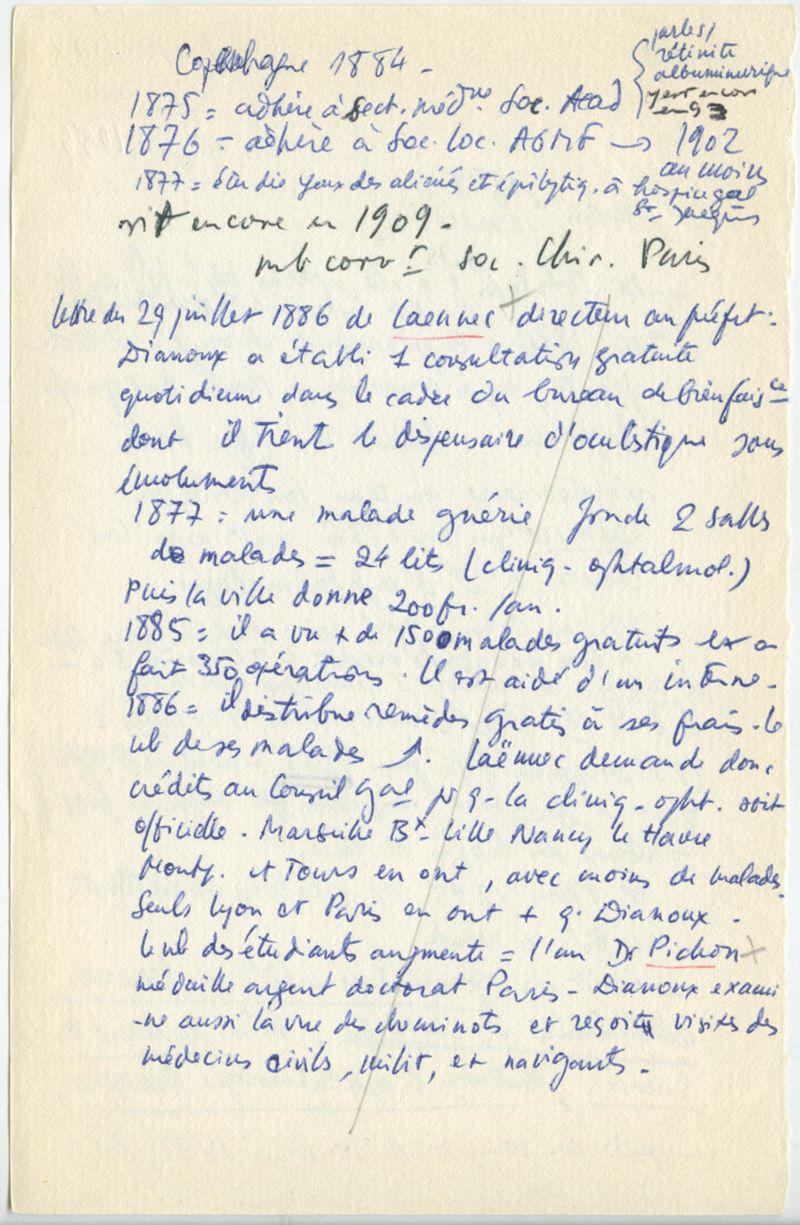 Copenhague 1884 -
parle s/
rétinite
albuminurique
y est encor
en 93
1875 = adhère à Sect. méd.ne Soc. Acad
1876 = adhère à Soc. loc. AGMF → 1902
au moins
1877 = étudie yeux des aliénés et épileptiq. à hospice gal
St Jacques
vit encore en 1909 -
mb corr t Soc. Chir. Paris
lettre du 29 juillet 1886 de Laennec + directeur au préfet :
Dianoux a établi 1 consultation gratuite
quotidienne dans le cadre du bureau de bienfaisce
dont il tient le dispensaire d'oculistique sans
émoluments
1877 = une malade guérie fonde 2 salles
de malades = 24 lits (cliniq. ophtalmol.)
Puis la ville donne 200 fr. /an.
1885 = il a vu + de 1500 malades gratuits et a
fait 350 opérations. Il est aidé d'un interne -
1886 = il distribue remèdes gratis à ses frais. le
nb de ses malades ↗. Laënnec demande donc
crédits au Conseil Gal pr q. la cliniq. opht. soit
officielle. Marseille Bx Lille Nancy le Havre
Montp. et Tours en ont, avec moins de malades.
Seuls Lyon et Paris en ont + q. Dianoux -
le nb des étudiants augmente = l'un Dr Pichon +
médaille argent doctorat Paris - Dianoux exami
-ne aussi la vue des cheminots et reçoit visites des
médecins civils, milit, et navigants -